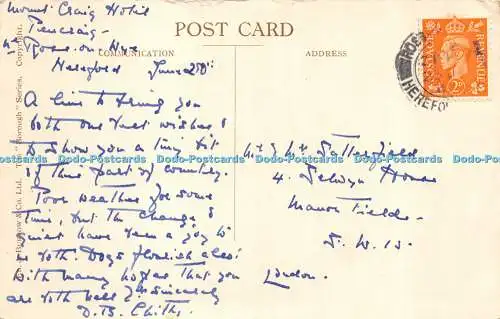 Mount Craig Hotel
Pencraig
Nr Ross-on-Wye
Hereford June 25th
POST CARD
COMMUNICATION
ADDRESS
A line to bring you
both our best wishes &
to show you a tiny bit
of this part of country.
Poor weather for some
time, but the change &
quiet have been a joy to
us both. Dogs flourish also!
With many hopes that you
are both well & Yrs sincerely
D.B.
Mr & Mrs Satterfield
4. Selwyn House
Manor Fields
S.W.15.
London.
POSTAGE
REVENUE
2D
ROSS
HEREFO
& Co. Ltd. "Borough" Series. Copyright.
Dodo-Postcards Dodo-Postcards Dodo-Postcards Dodo-Postcards Dodo-Postcards Dodo-Postcards